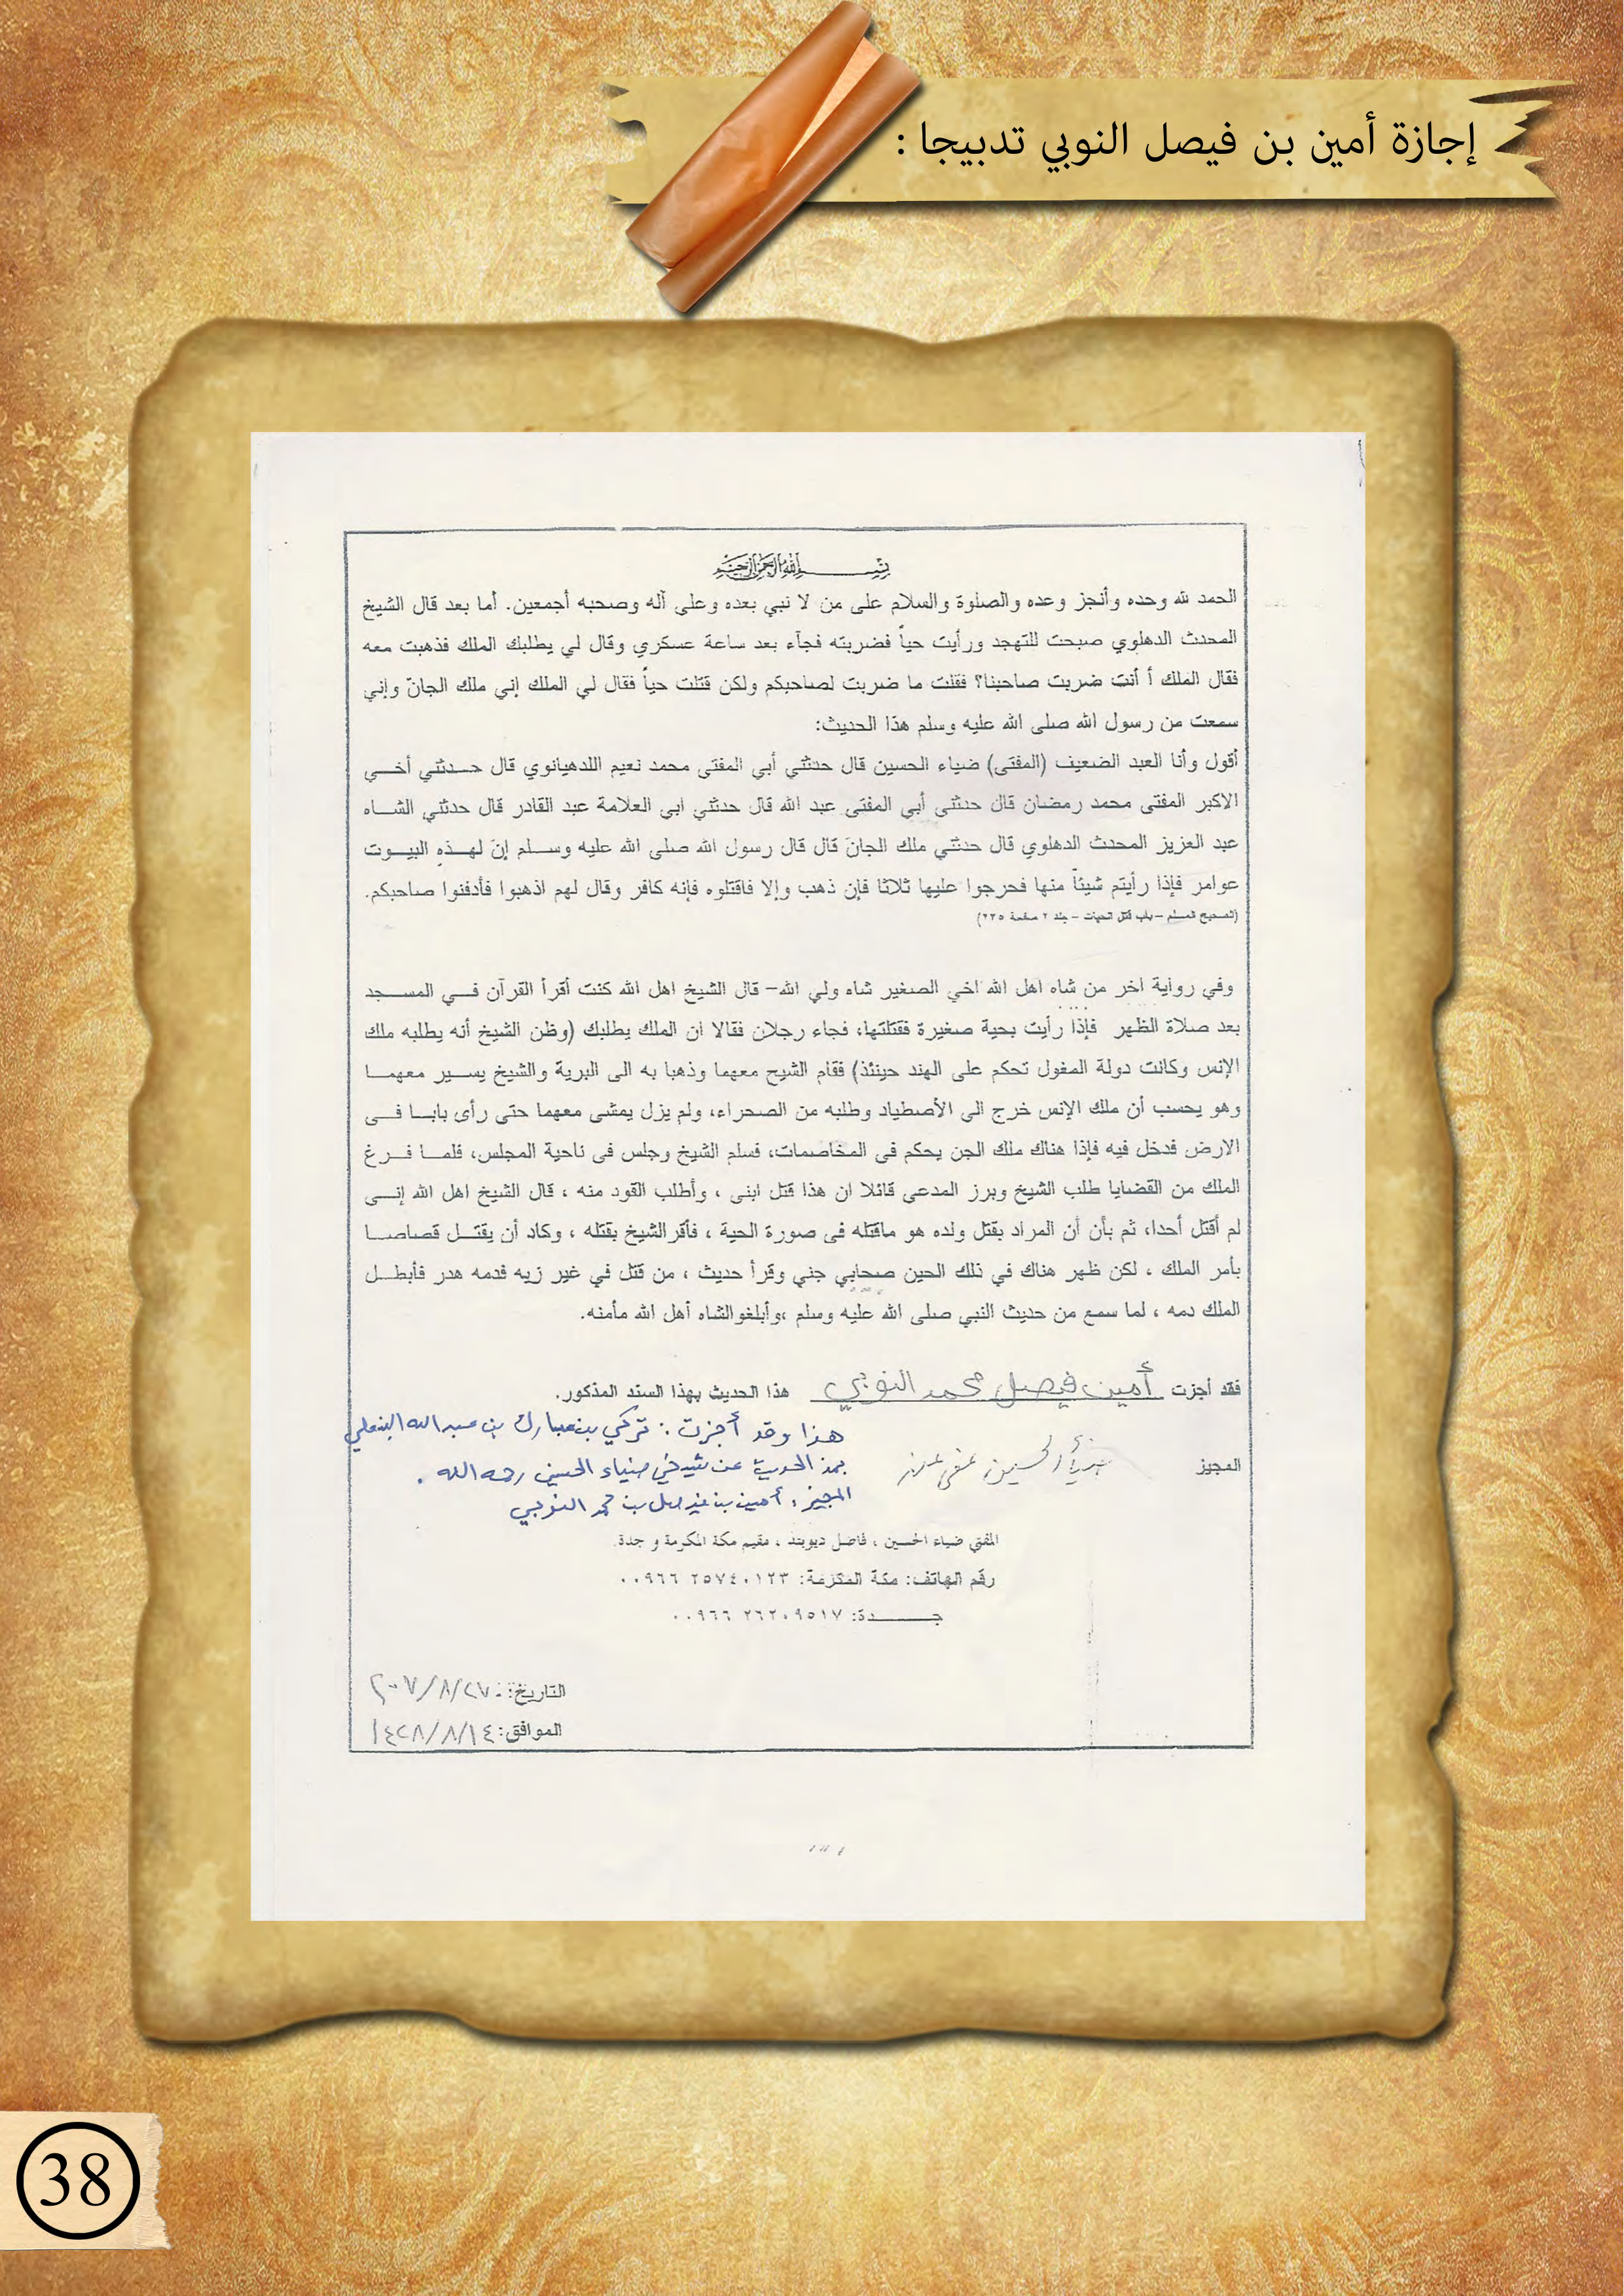 إجازة أمين بن فيصل النوبي تدبيجا :
بسم الله الرحمن الرحيم
الحمد لله وحده وأنجز وعده والصلوة والسلام على من لا نبي بعده وعلى آله وصحبه أجمعين. أما بعد قال الشيخ
المحدث الدهلوي صبحت للتهجد ورأيت حياً فضربته فجآء بعد ساعة عسكري وقال لي يطلبك الملك فذهبت معه
فقال الملك أ أنت ضربت صاحبنا؟ فقلت ما ضربت لصاحبكم ولكن قتلت حياً فقال لي الملك إني ملك الجانّ وإني
سمعت من رسول الله صلى الله عليه وسلم هذا الحديث:
أقول وأنا العبد الضعيف (المفتى) ضياء الحسين قال حدثني أبي المفتى محمد نعيم اللدهيانوي قال حدثني أخي
الاكبر المفتى محمد رمضان قال حدثنى أبي المفتى عبد الله قال حدثني ابي العلامة عبد القادر قال حدثني الشاه
عبد العزيز المحدث الدهلوي قال حدثني ملك الجانَ قال قال رسول الله صلى الله عليه وسلم إنَ لهذه البيوت
عوامر فإذا رأيتم شيئاً منها فحرجوا عليها ثلاثا فإن ذهب وإلا فاقتلوه فإنه كافر وقال لهم اذهبوا فأدفنوا صاحبكم.
(الصحيح المسلم – باب قتل الحيات – جلد ٢ صفحة ٢٣٥)
وفي رواية اخر من شاه اهل الله اخي الصغير شاه ولي الله– قال الشيخ اهل الله كنت أقرأ القرآن في المسجد
بعد صلاة الظهر فإذا رأيت بحية صغيرة فقتلتها، فجاء رجلان فقالا ان الملك يطلبك (وظن الشيخ أنه يطلبه ملك
الإنس وكانت دولة المغول تحكم على الهند حينئذ) فقام الشيح معهما وذهبا به الى البرية والشيخ يسير معهما
وهو يحسب أن ملك الإنس خرج الى الأصطياد وطلبه من الصحراء، ولم يزل يمشى معهما حتى رأى بابا فى
الارض فدخل فيه فإذا هناك ملك الجن يحكم فى المخاصمات، فسلم الشيخ وجلس فى ناحية المجلس، فلما فرغ
الملك من القضايا طلب الشيخ وبرز المدعى قائلا ان هذا قتل ابنى ، وأطلب القود منه ، قال الشيخ اهل الله إنى
لم أقتل أحدا، ثم بأن أن المراد بقتل ولده هو ماقتله فى صورة الحية ، فأقرالشيخ بقتله ، وكاد أن يقتل قصاصا
بأمر الملك ، لكن ظهر هناك في ذلك الحين صحابي جني وقرأ حديث ، من قتل في غير زيه فدمه هدر فأبطل
الملك دمه ، لما سمع من حديث النبي صلى الله عليه وسلم ،وأبلغوالشاه أهل الله مأمنه.
فقد أجزت أمين فيصل محمد النوبي هذا الحديث بهذا السند المذكور.
هذا وقد أجزت : تركي بن مبارك بن عبدالله البنعلي
المجيز ضياء الحسين عفي عنه بهذا الحديث عن شيخي ضياء الحسين رحمه الله .
المجيز : أمين بن فيصل بن محمد النوبي
المفتي ضياء الحسين ، فاضل ديوبند ، مقيم مكة المكرمة و جدة.
رقم الهاتف: مكة المكرمة: ٢٥٧٤٠١٢٣ ٠٠٩٦٦
جدة: ٢٦٢٠٩٥١٧ ٠٠٩٦٦
التاريخ: ٢٠٠٧/٨/٢٧
الموافق: ١٤٢٨/٨/١٤
38